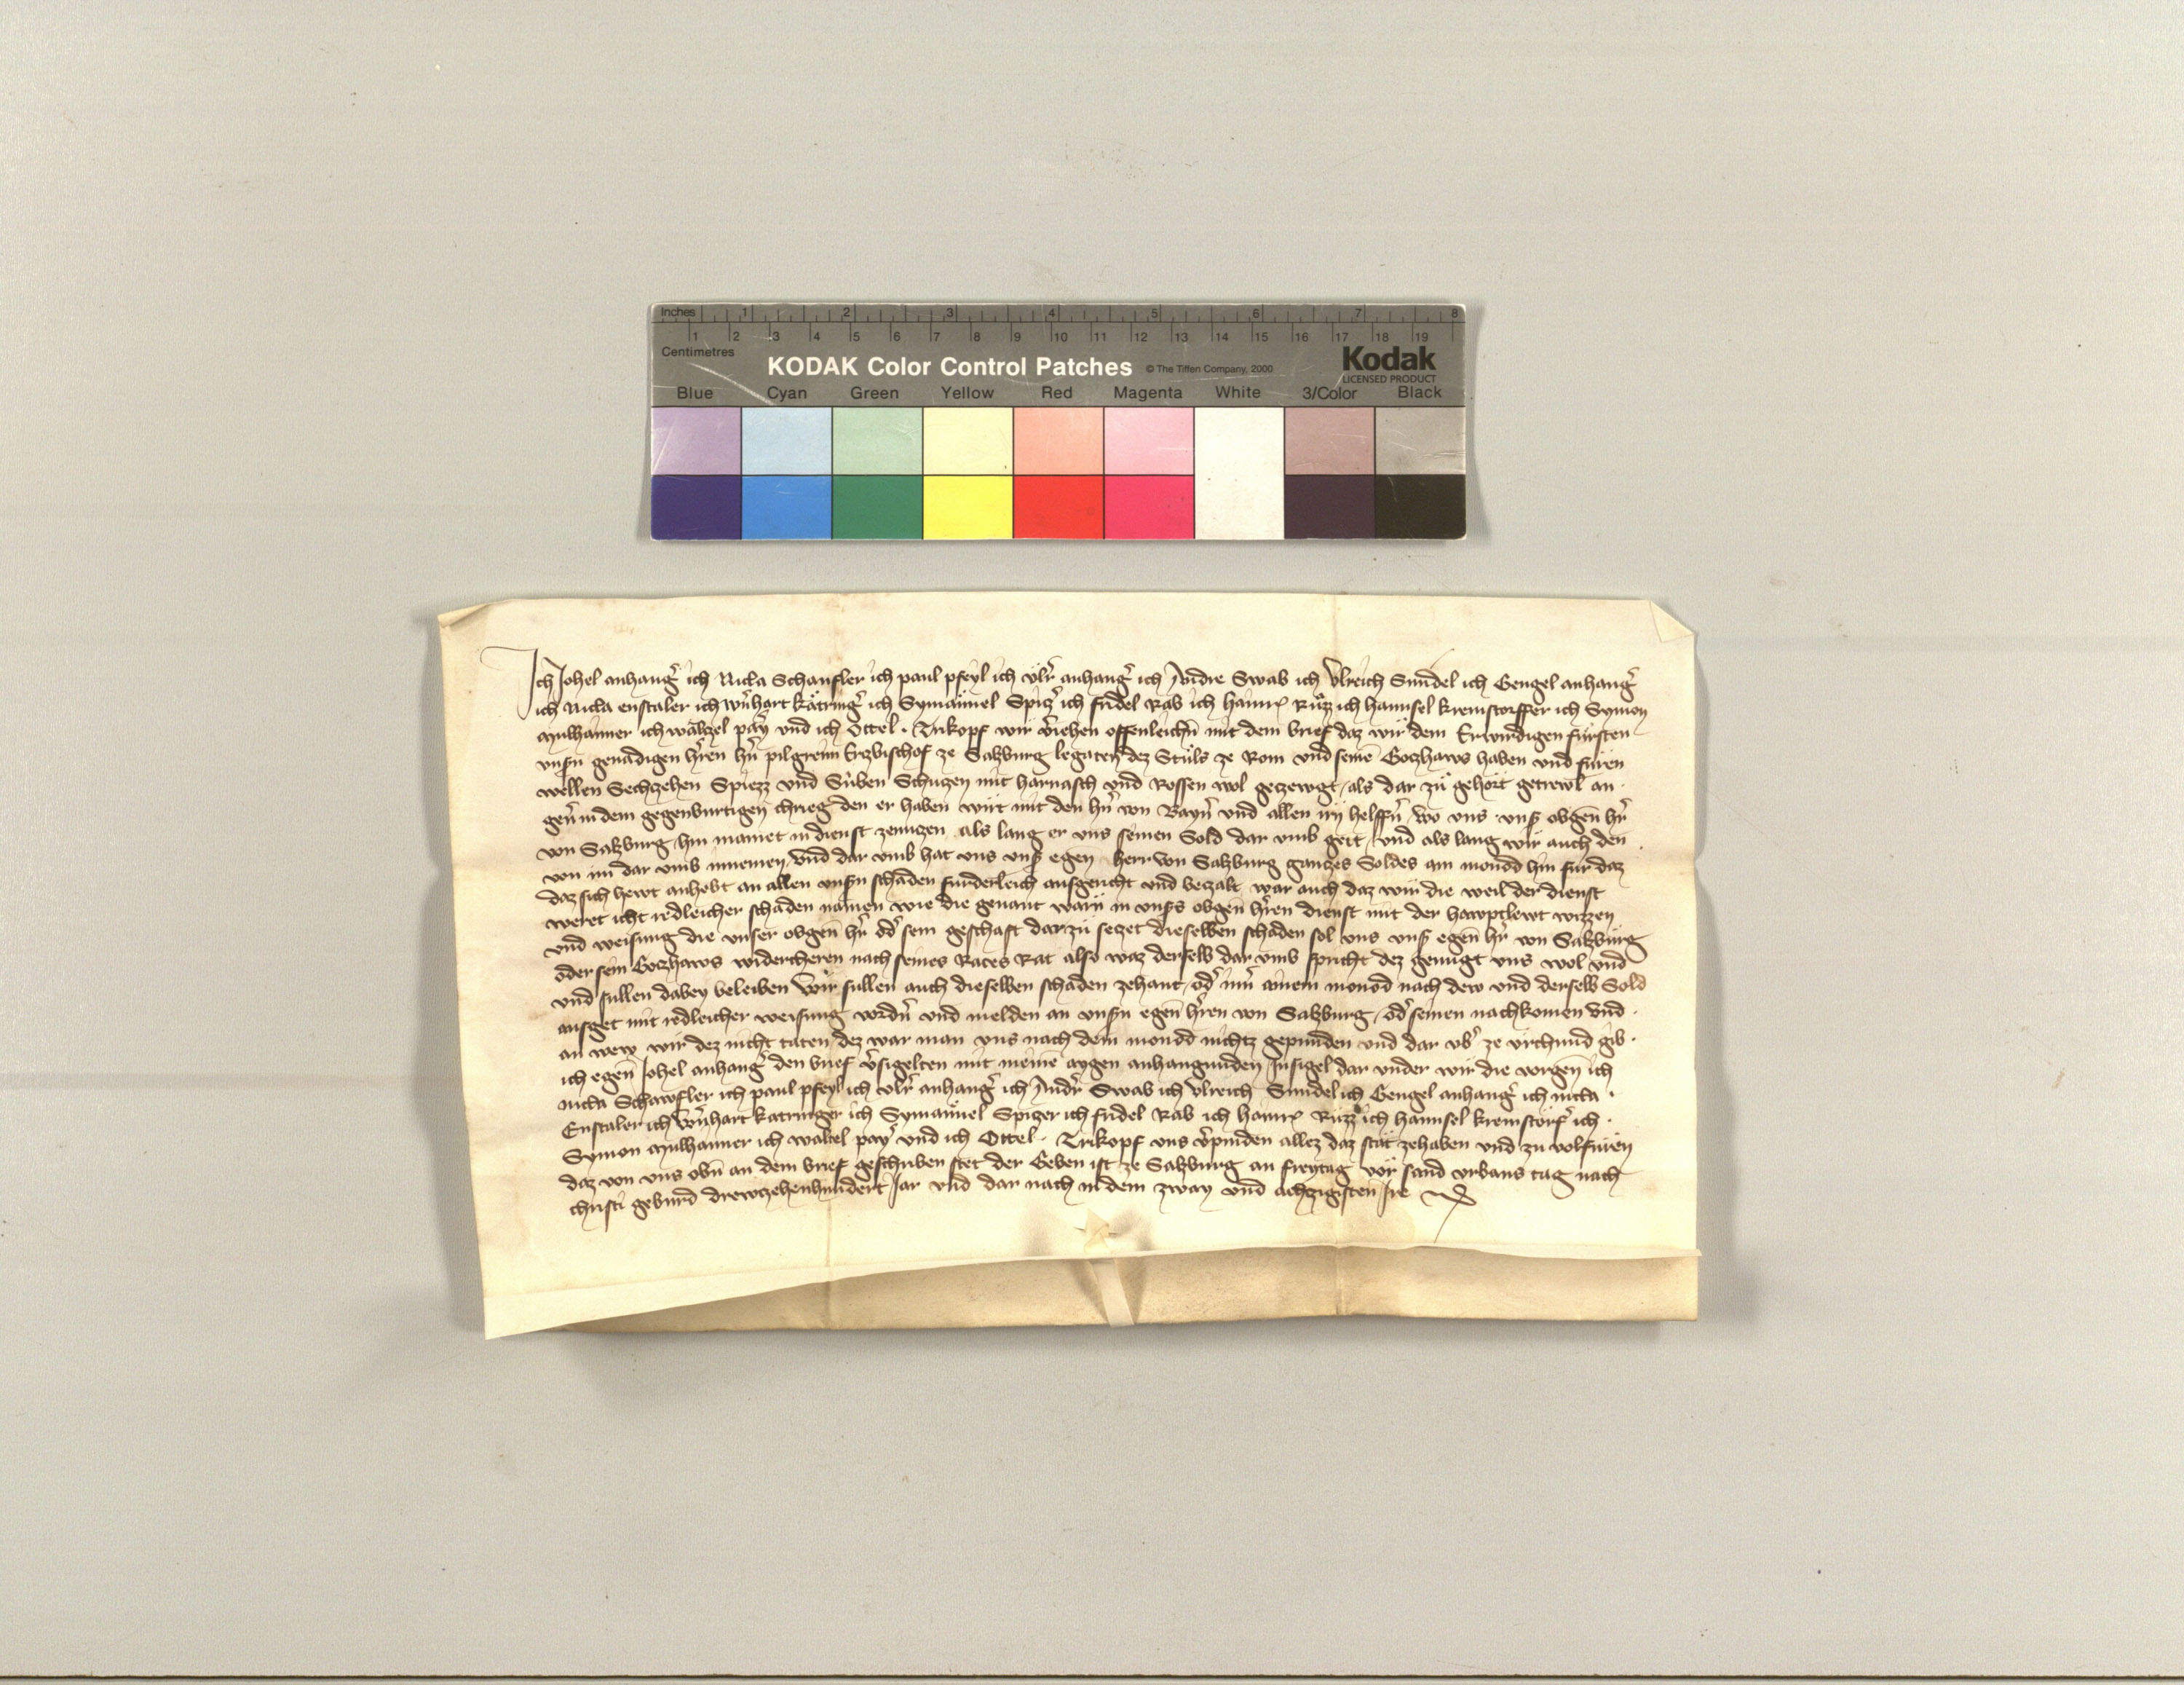 Inches 1 2 3 4 5 6 7 8
1 2 3 4 5 6 7 8 9 10 11 12 13 14 15 16 17 18 19
Centimetres
KODAK Color Control Patches © The Tiffen Company, 2000 Kodak
LICENSED PRODUCT
Blue Cyan Green Yellow Red Magenta White 3/Color Black
Ich Johel anhang̉ ich Nicla Schaufler ich paul pfeyl ich Ulr̉ anhang̉ ich Andre Swab ich Vlreich Sundel ich Gengel anhang̉
ich Nicla enstaler ich wernhart katring̉ ich Symaniel Spitz̉ ich fridel Rab ich hainr̉ Ruzz ich hannsel kremstorffer ich Symon
Mulhaimer ich waltzel paỷ vnd ich Ottel Trikopf wir v̉iehen offenleichn̄ mit dem brief daz wir dem Erwirdigen fürsten
vnsn̉ genadigen hr̉en hn̉ pilgreim Erzbischof ze Salzburg legaten dez Stuls ze Rom vnd seinē Gotzhaws haben vnd füren
wellen Sechzehen Spiezz vnd Siben Schuzen mit harnasch vnd Rossen wol getzewgt als dar zu gehört getrewl an
gen̉ in dem gegenburtigen chrieg den er haben wirt mit den hn̉ von Bayn̉ vnd allen irn helffn̉ wo vns vns̉ obgen̄ hr̉
von Salzburg hin mannet in dienst zenutzen als lang er vns seinen Sold dar vmb geit vnd als lang wir auch den
von im dar vmb innemen vnd dar vmb hat vns vns̉ egen̄ herr von Salzburg gantzes Soldes ain monad hin fur daz
daz sich hewt anhebt an allen vnsn̉ schaden furderleich ausgericht vnd betzalt war auch daz wir die weil der dienst
weret icht redleicher schaden namen wie die genant warn in vns̉s obgen̄ hr̉en dienst mit der hawptlewt wizzen
vnd weisung die vnser obgen̄ hr̉ od̉ sein geschaft darzu setzet dieselben schaden sol vns vns̉ egen̄ hr̉ von Salzburg
oder sein Gotzhaws widercheren nach seines Rates Rat also waz derselb dar vmb spricht dez genugt vns wol vnd
vnd sullen dabey beleiben Wir sullen auch dieselben schaden zehant od̉ inn̉ ainem monad nach dew vnd derselb Sold
ausget mit redleicher weisung vordn̉ vnd melden an vnsn̉ egen̄ hr̉en von Salzburg od̉ seinen nachkomen vnd
an wew wir dez nicht taten dez war man vns nach dem monad nichtz gepunden vnd dar vb̉ ze vrchund gib
ich egen̄ Johel anhang̉ den brief v̉sigelten mit meinē aygen anhangunden Insigel dar vnder wir die vorgen̄ ich
nicla Schawfler ich paul pfeyl ich Vlr̉ anhang̉ ich Andr̉ Swab ich Vlreich Sundel ich Gengel anhang̉ ich nicla
Enstaler ich Wernhart katringer ich Symaniel Spitzer ich fridel Rab ich hainr̉ Ruzz ich hannsel kremstorf̉ ich
Symon Mulhaimer ich waltel paỷ vnd ich Ottel Trikopf vns v̉pinden allez daz stat zehaben vnd zu volfuren
daz von vns obn̄ an dem brief geschriben stet der Geben ist ze Salzburg an freytag vor sand vrbans tag nach
christi geburd drewtzehenhundert Jar vnd dar nach in dem zway vnd achtzigisten Jre